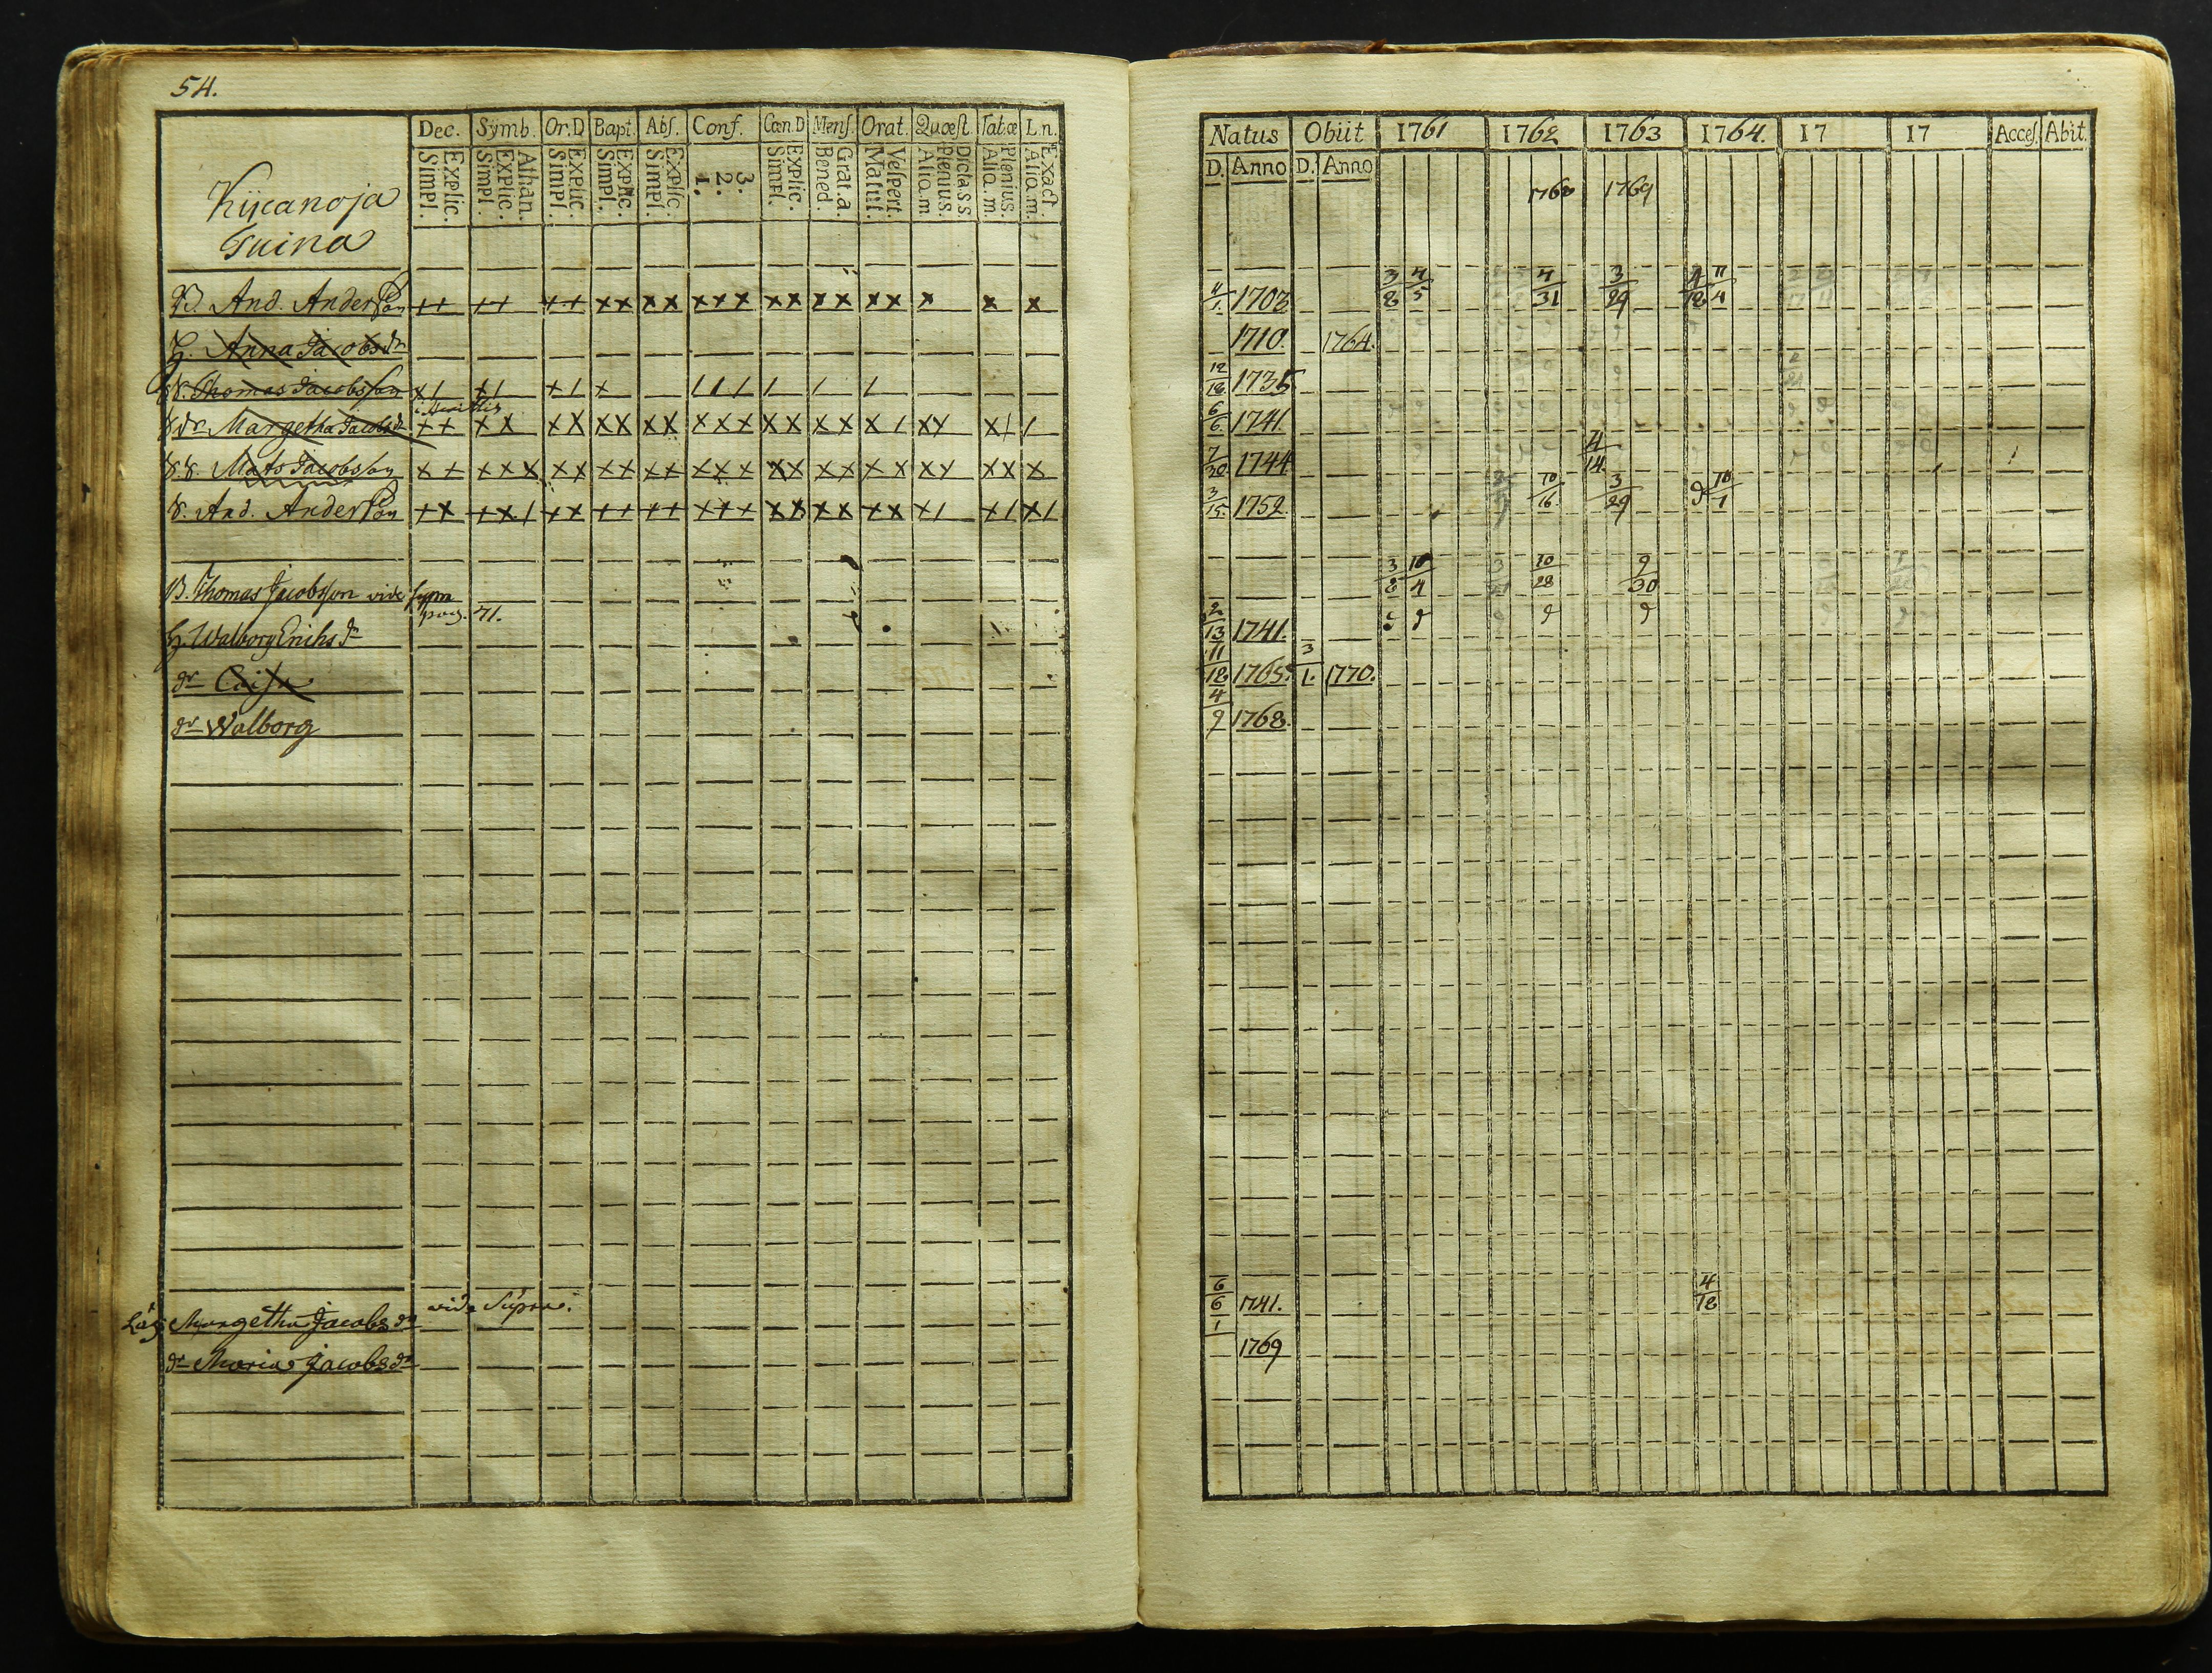 54.
Dec. Symb. Or.D Bapt. Abs. Conf. Cœn.D Mens. Orat. Quæst Tab.œ L.n.
Simpl. Explic. Simpl. Explic. Athan. Simpl. Explic. Simpl. Explic. Simpl. Explic. 1. 2. 3. Simpl. Explic. Bened. Grat.a. Matut. Vespert. Aliq.m. Plenius. Dicta s s. Aliq.m. Plenius. Aliq.m. Exact.
And. Anderſson ++ ++ ++ xx xx xxx xx xx xx x x x
H. Anna Jacobs dr
Thomas Jacobsson x/ x/ x/ x /// / / /
dr Margetha Jacobs dr ++ xx xx xx xx xxx xx xx x/ xx x/ /
Mats Jacobsson ++ xxx xx ++ ++ xxx xx xx xx xx xx x
And. Anderſson ++ xx/ ++ ++ ++ +++ xx xx xx x/ x/ x/
B. Thomas Jacobsson vide
pag. 71.
H. Walborg Erichs dr
dr Caisa
dr Walborg
vide Supra.
Margetha Jacobs dr
dr Maria Jacobs dr
Natus Obiit 1761 1762 1763 1764. 17 17 Acceſ. Abit.
D. Anno D. Anno
1768 1769
11/1. 1703 3/8 4/5 4/31 3/29 11/4
1710. 1764.
12/18 1735
6/6 1741.
7/20 1744 4/14.
3/15. 1752. 10/16. 3/29 10/1
3/8 10/4 10/28 9/30
2/13 1741.
11/18 1765. 3/1. 1770.
4/9 1768.
6/6 1741. 4/18
1769